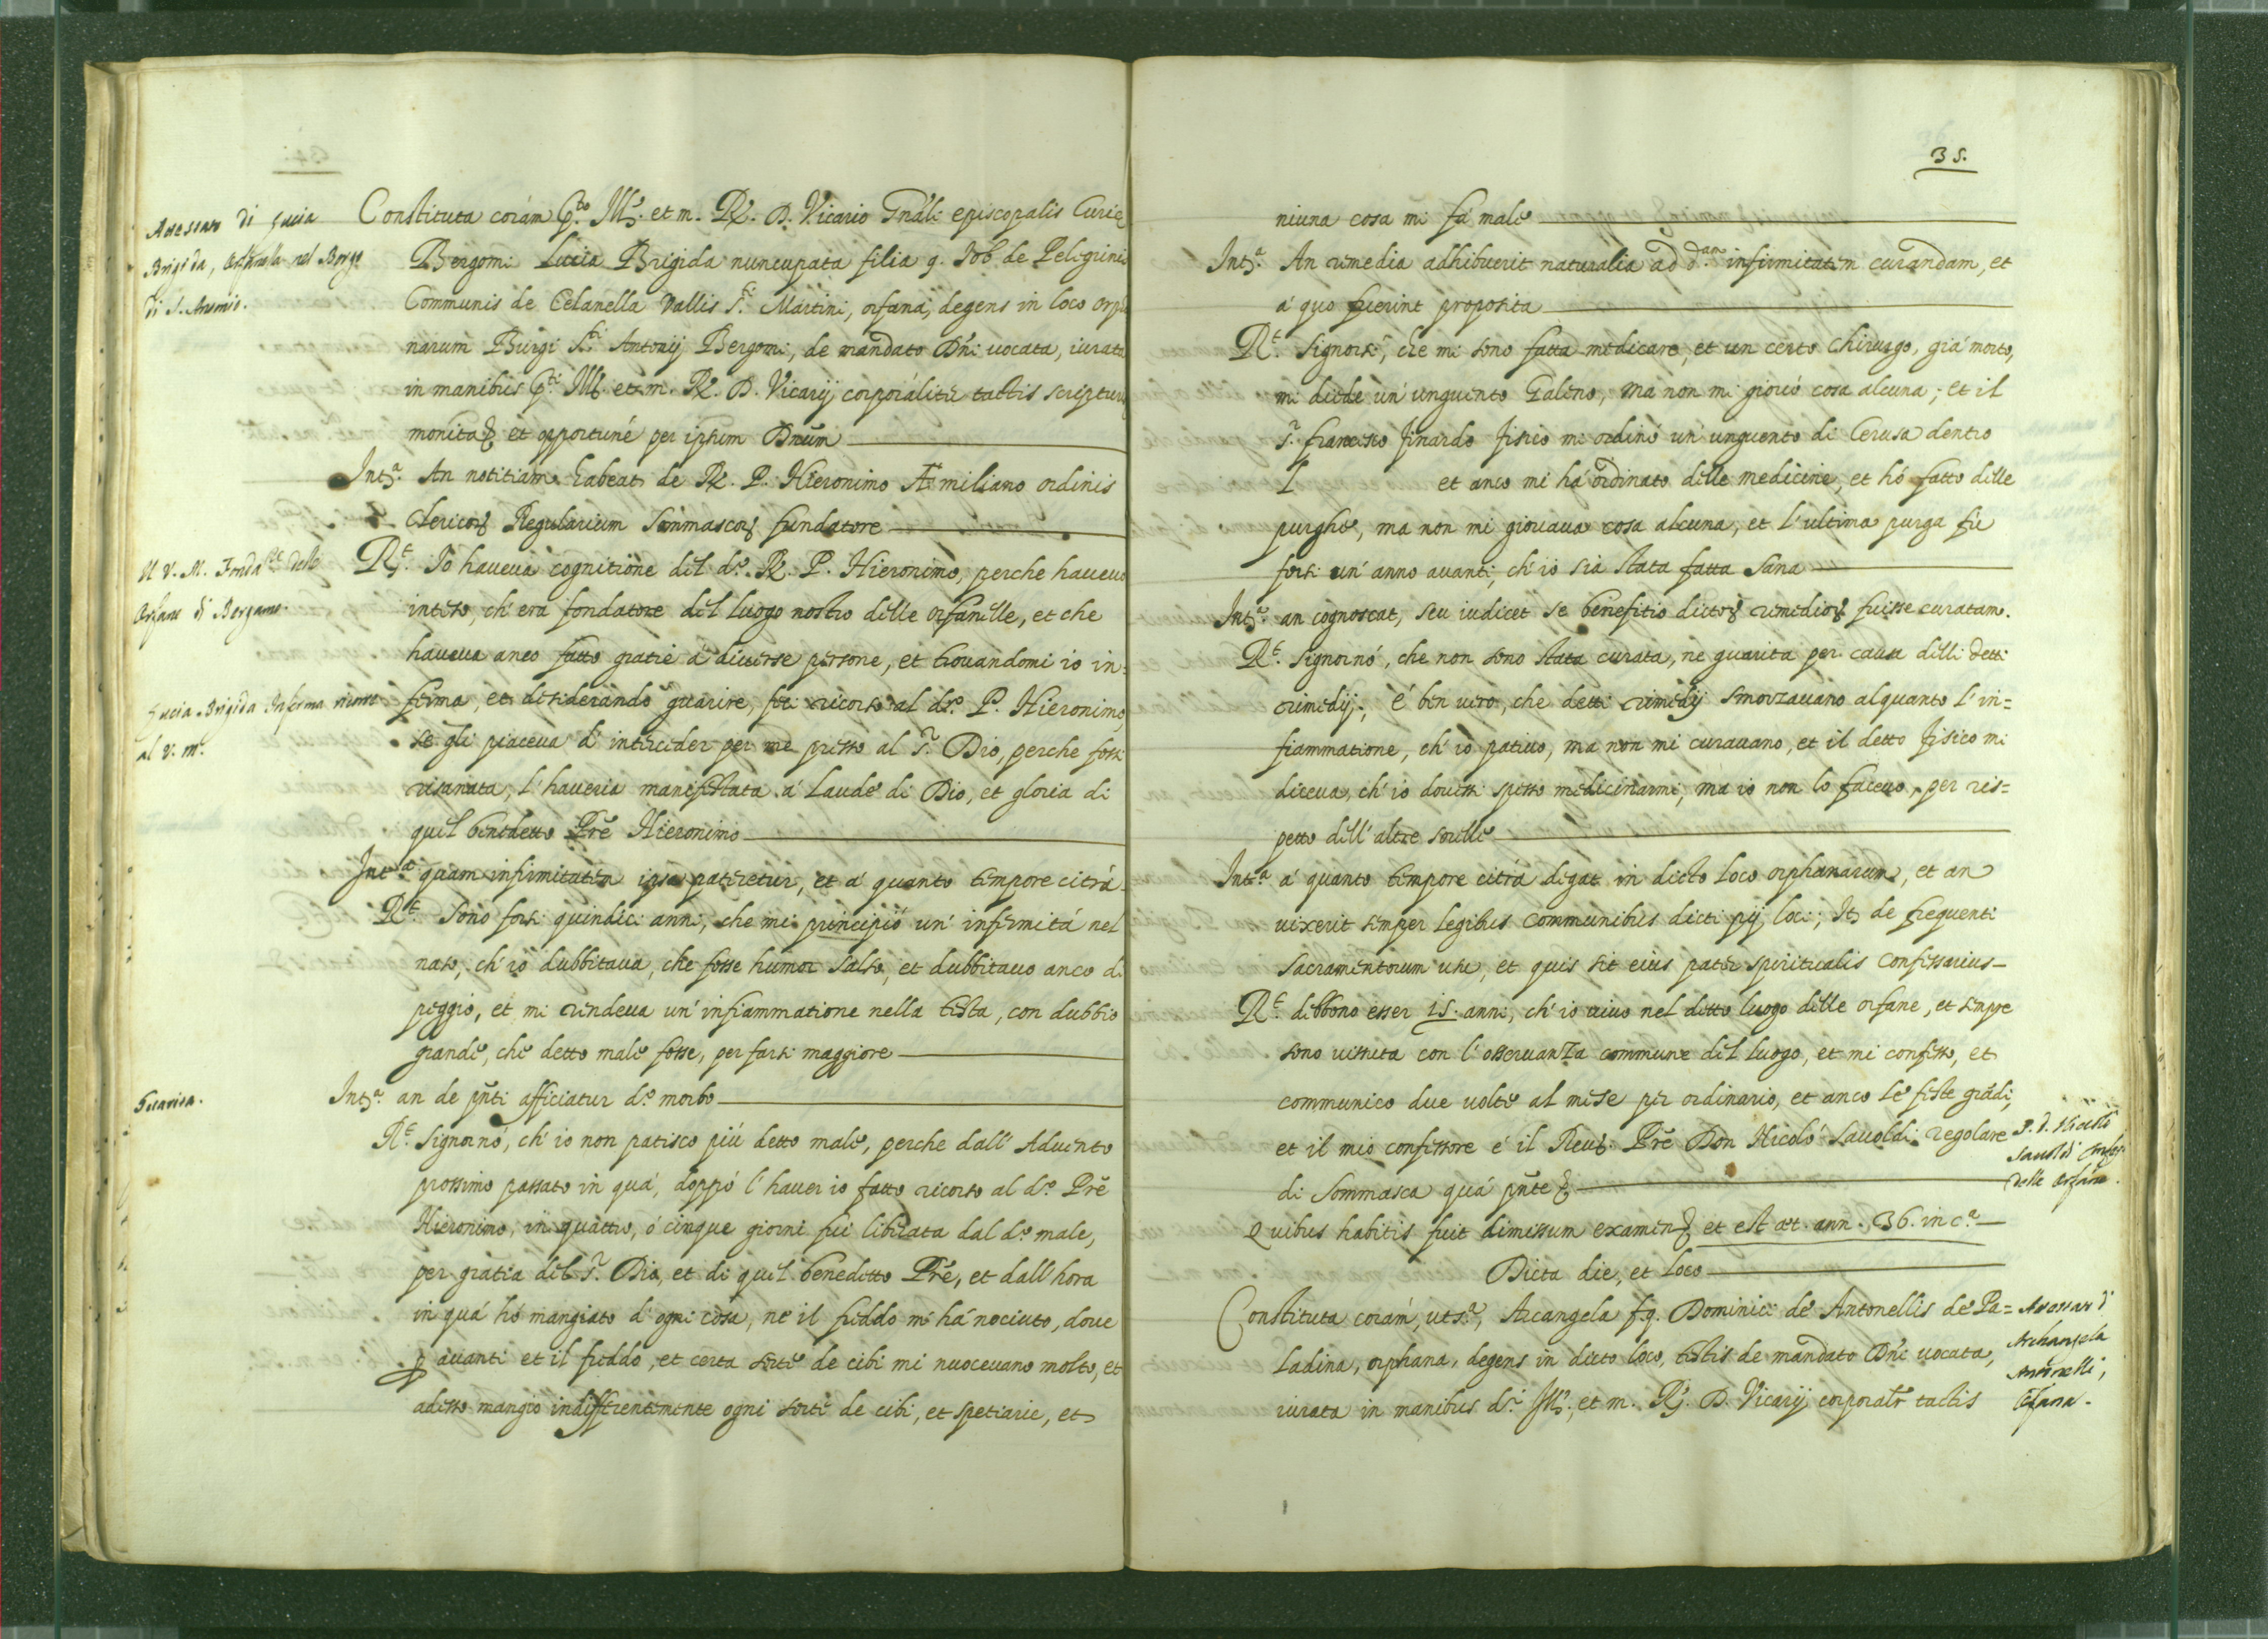 Constituta coram p.to Ill.e et m. R. D. Vicario Gnãli episcopalis Curie
Bergomi Lucia Brigida nuncupata filia q. Job de Peligrinis
Communis de Celanella Vallis S.ti Martini, orfana, degens in loco orpha
narum Burgi S.ti Antonij Bergomi, de mandato Dñi uocata, iurata
in manibus p.ti Ill. et m. R. D. Vicarij corporaliter tactis scripturis
monita et opportuné per ipsum Dnũm
Int.a An notitiam habeat de R. P. Hieronimo Æmiliano ordinis
Clericor Regularium Sommascor fundatore
R.t Io haueua cognitione del d.o R. P. Hieronimo, perche haueuo
inteso, ch'era fondatore del luogo nostro delle orfanelle, et che
haueua anco fatto gratie á diuerse persone, et trouandomi io in=
ferma, et desiderando guarire, feci ricorso al d.o P. Hieronimo
se gli piaceua d'interceder per me presso al S.r Dio, perche fossi
risanata, l'haueria manifestata á Laude di Dio, et gloria di
quel benedetto Prẽ Hieronimo
Int.a quam infirmitatem ipsa pateretur, et á quanto tempore citrá
R.t Sono forsi quindici anni, che mi principió un' infirmitá nel
naso, ch'io dubbitaua, che fosse humor salso, et dubbitauo anco di
peggio, et mi rendeua un' infiammatione nella testa, con dubbio
grande, che detto male fosse, per farsi maggiore
Int.a an de pñti afficiatur d.o morbo
R.t Signornó, ch'io non patisco piú detto male, perche dall' Aduento
prossimo passato in quá, doppó l'hauer io fatto ricorso al d.o Prẽ
Hieronimo, in quattro, ó cinque giorni fui liberata dal d.o male,
per gratia del S.r Dio, et di quel benedetto Prẽ, et dall'hora
in quá hó mangiato d'ogni cosa, ne il freddo mi há nociuto, doue
p auanti et il freddo, et certa sorte de cibi mi nuoceuano molto, et
adesso mangio indifferentemente ogni sorte de cibi, et spetiarie, et
Brigida, Orfanella nel Borgo
di S. Antonio.
Il V. M. Fonda.re delle
Orfane di Bergamo.
Lucia Brigida Inferma ricorre
al V. M.
Guarisa.
35.
niuna cosa mi fa male
Int.a An remedia adhibuerit naturalia ad d.am infirmitatem curandam, et
á quo fuerint proposita
R.t Signorsi, che mi sono fatta medicare, et un certo Chirurgo, giá morto,
mi diede un' unguento Galeno, ma non mi giouó cosa alcuna; et il
S.r Francesco Finardo Fisico mi ordinó un' unguento di Cerusa dentro
I et anco mi há ordinato delle medicine, et hó fatto delle
purghe, ma non mi giouaua cosa alcuna, et l'ultima purga fú
forsi un' anno auanti, ch'io sia stata fatta Sana
Int.a an cognoscat, seu iudicet se benefitio dictor remedior fuisse curatam.
R.t Signornó, che non sono stata curata, ne guarita per causa delli detti
rimedij; é ben uero, che detti rimedij smorzauano alquanto l'in=
fiammatione, ch'io patiuo, ma non mi curauano, et il detto Fisico mi
diceua, ch'io douessi spesso medicinarmi, ma io non lo faceuo, per ris=
petto dell'altre sorelle
Int.a á quanto tempore citrá degat in dicto loco orphanarum, et an
uixerit semper legibus communibus dicti pij loci; It de frequenti
sacramentorum usu, et quis sit eius pater spiritualis confessarius
R.t debbono esser 15. anni, ch'io uiuo nel detto luogo delle orfane, et sempre
sono uissuta con l'osseruanza commune del luogo, et mi confesso, et
communico due uolte al mese per ordinario, et anco le feste grãdi,
et il mio confessore é il Reu. Prẽ Don Nicoló Sauoldi regolare
di Sommasca quá pñte
Quibus habitis fuit dimissum examen et est æt. ann. 36. in c.a
Dicta die, et loco
Constituta coram, ut s.a, Arcangela f.q. Dominici de Antonellis de Pa=
Ladina, orphana, degens in dicto loco, testis de mandato Dñi uocata,
iurata in manibus d.i Ill., et m. R. D. Vicarij corporalr tactis
P. D. Nicolò
Sauoldi Confes.
delle Orfane.
Archangela
Antonelli,
Orfana.